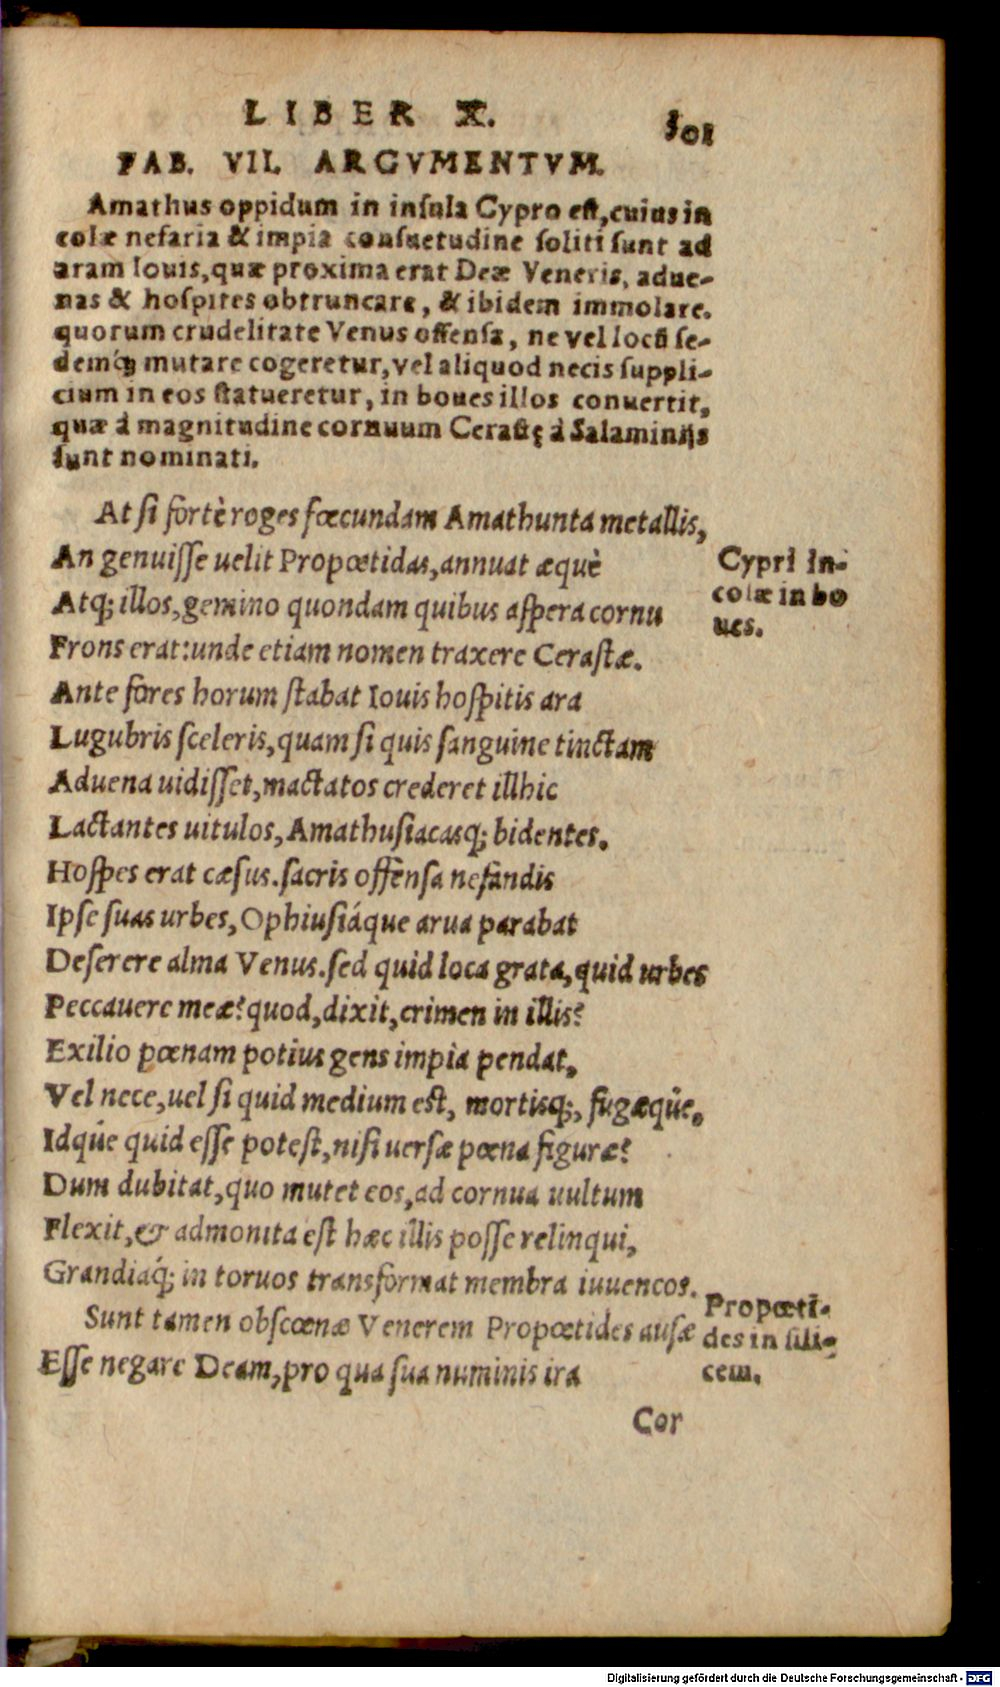 LIBER X. 301
FAB. VII. ARGVMENTVM.
Amathus oppidum in insula Cypro est, cuius in
colæ nefaria & impia consuetudine soliti sunt ad
aram Iouis, quæ proxima erat Deæ Veneris, adue-
nas & hospites obtruncare, & ibidem immolare.
quorum crudelitate Venus offensa, ne vel locũ se-
demq́; mutare cogeretur, vel aliquod necis suppli-
cium in eos statueretur, in boues illos conuertit,
quæ à magnitudine cornuum Cerastę à Salaminijs
sunt nominati.
At si fortè roges fœcundam Amathunta metallis,
An genuisse uelit Propœtidas, annuat æquè
Atq; illos, gemino quondam quibus aspera cornu
Frons erat: unde etiam nomen traxere Cerastæ.
Cypri in-
colæ in bo
ues.
Ante fores horum stabat Iouis hospitis ara
Lugubris sceleris, quam si quis sanguine tinctam
Aduena uidisset, mactatos crederet illhic
Lactantes uitulos, Amathusiacasq; bidentes.
Hospes erat cæsus. sacris offensa nefandis
Ipse suas urbes, Ophiusiáque arua parabat
Deserere alma Venus. sed quid loca grata, quid urbes
Peccauere meæ? quod, dixit, crimen in illis?
Exilio pœnam potius gens impia pendat,
Vel nece, uel si quid medium est, mortisq;, fugæqúe.
Idqúe quid esse potest, nisi uersæ pœna figuræ?
Dum dubitat, quo mutet eos, ad cornua uultum
Flexit, & admonita est hæc illis posse relinqui,
Grandiaq́; in toruos transformat membra iuuencos.
Sunt tamen obscœnæ Venerem Propœtides ausæ
Esse negare Deam, pro qua sua numinis ira
Propœti-
des in sili-
cem.
Cor
Digitalisierung gefördert durch die Deutsche Forschungsgemeinschaft - DFG